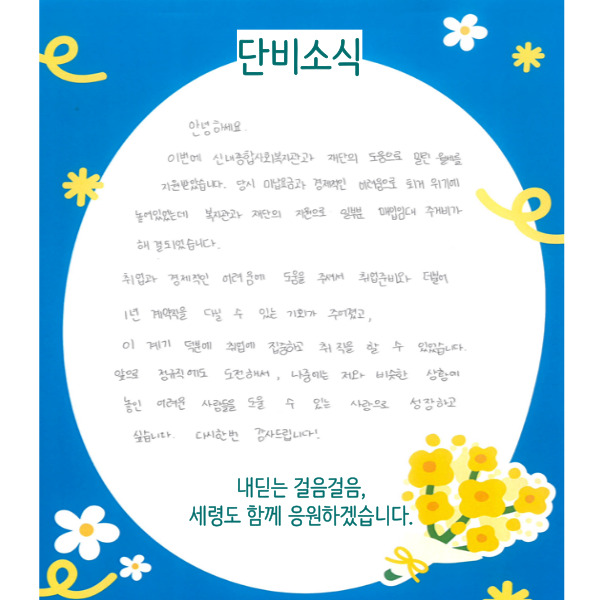 단비소식
안녕하세요.
이번에 신내종합사회복지관과 재단의 도움으로 밀린 월세를
지원받았습니다. 당시 미납요금과 경제적인 어려움으로 퇴거 위기에
놓여있었는데 복지관과 재단의 지원으로 일부분 매입임대 주거비가
해결되었습니다.
취업과 경제적인 어려움에 도움을 주셔서 취업준비와 더불어
1년 계약직을 다닐 수 있는 기회가 주어졌고,
이 계기 덕분에 취업에 집중하고 취직을 할 수 있었습니다.
앞으로 정규직에도 도전해서, 나중에는 저와 비슷한 상황에
놓인 어려운 사람들을 도울 수 있는 사람으로 성장하고
싶습니다. 다시한번 감사드립니다!
내딛는 걸음걸음,
세령도 함께 응원하겠습니다.